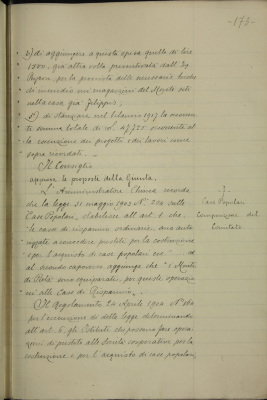 -173-
" b) di aggiungere a questa spesa quella di lire
" 1500, già altra volta preventivata dall'Ing.
" per la provvista delle necessarie
" incendio nei magazzini del Monte siti
" nella casa già Filippini;
" c) di stanziare nel bilancio 1907 la
" somma totale di L. 47,250 occorrente al
" la esecuzione dei progetti e dei lavori
" sopra ricordati. —
Il Consiglio
approva le proposte della Giunta. —
L'Amministratore ricorda
che la legge 31 maggio 1903 N. 254 sulle
Case Popolari, stabilisce all'art. 1 che
" le casse di risparmio ordinarie, sono auto
" rizzate a concedere prestiti per la costruzione
" e per l'acquisto di case popolari ecc. " ... ed
al secondo capoverso aggiunge che " i Monti
" di Pietà sono equiparati, per queste operazio
" ni alle Casse di Risparmio. —
Il Regolamento 24 Aprile 1904 N.
per l'esecuzione di detta legge determinando
all'art. 5 gli Istituti che possono fare opera
zioni di prestito alle Società cooperative per la
costruzione e per l'acquisto di case popolari,
Case Popolari
Comunicazione del